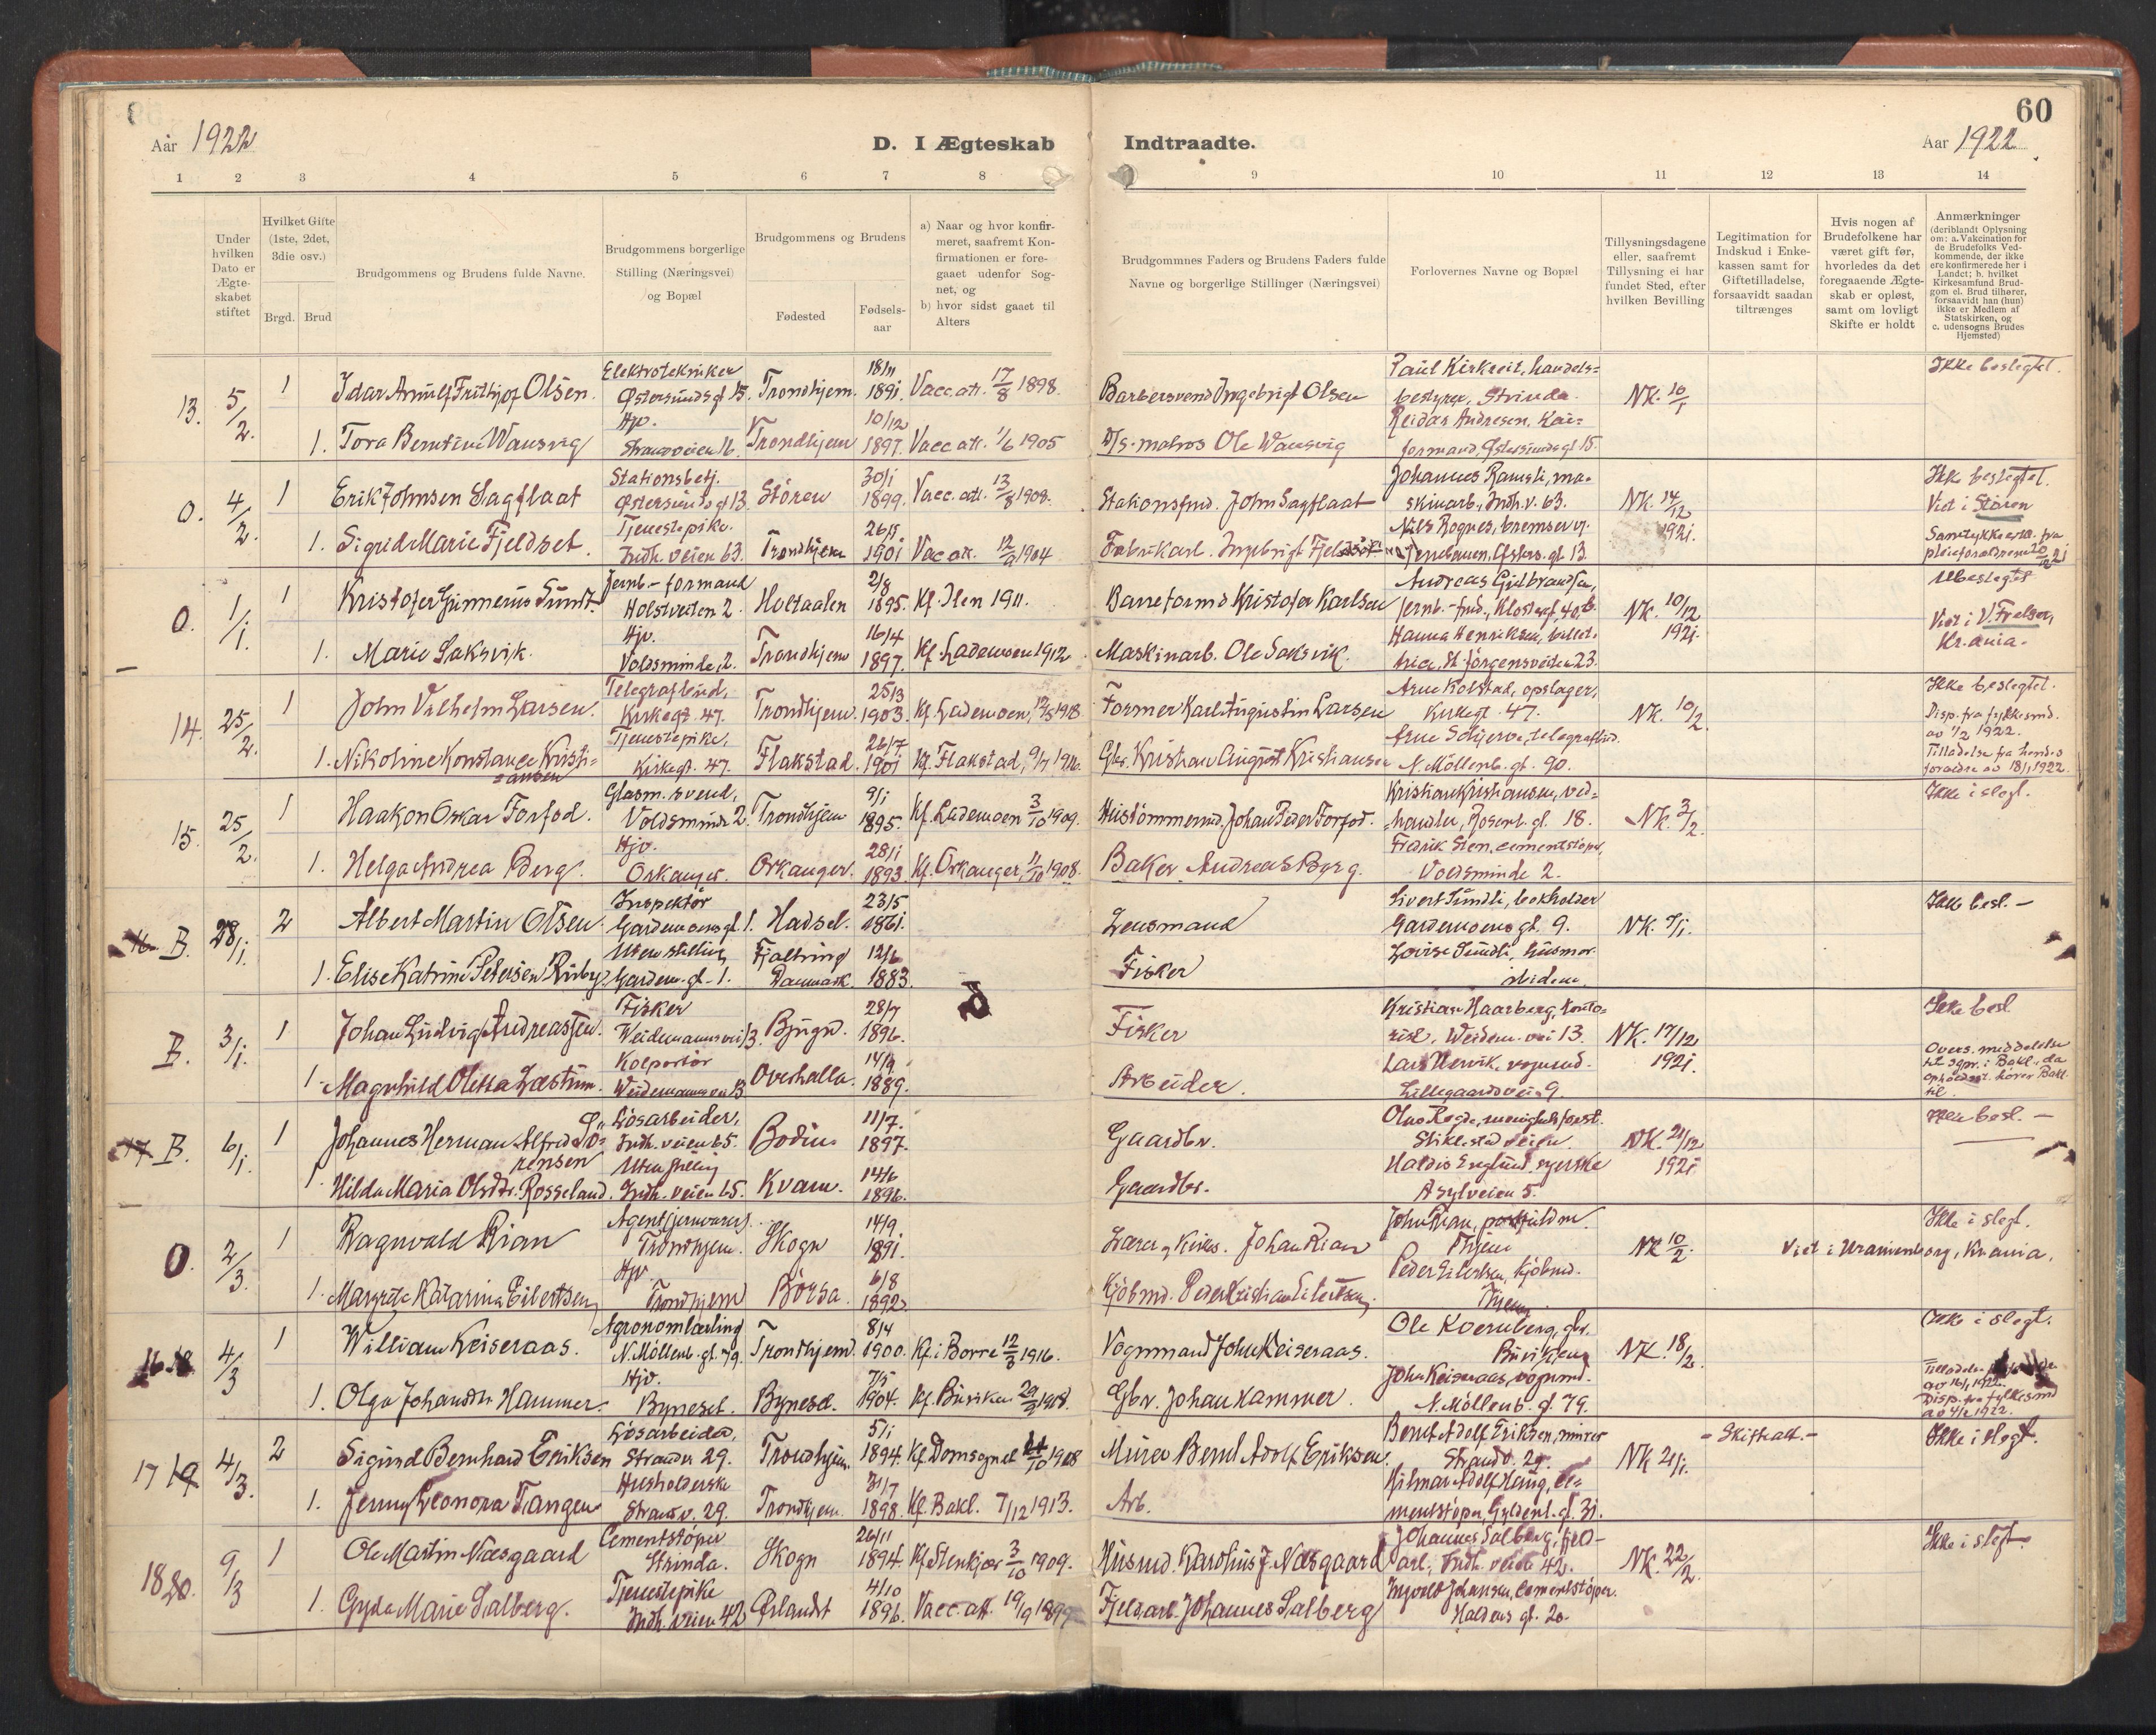 60
Aar 1922
D. I Ægteskab Indtraadte.
Aar 1922
1 2 3 4 5 6 7 8 9 10 11 12 13 14
Under hvilken Dato er Ægteskabet stiftet
Hvilket Gifte (1ste, 2det, 3die osv.)
Brgd. Brud
Brudgommens og Brudens fulde Navne.
Brudgommens borgerlige Stilling (Næringsvei) og Bopæl
Brudgommens og Brudens
Fødested
Fødselsaar
a) Naar og hvor konfirmeret, saafremt Konfirmationen er foregaaet udenfor Sognet, og
b) hvor sidst gaaet til Alters
Brudgommnes Faders og Brudens Faders fulde Navne og borgerlige Stillinger (Næringsvei)
Forlovernes Navne og Bopæl
Tillysningsdagene eller, saafremt Tillysning ei har fundet Sted, efter hvilken Bevilling
Legitimation for Indskud i Enkekassen samt for Giftetilladelse, forsaavidt saadan tiltrænges
Hvis nogen af Brudefolkene har været gift før, hvorledes da det foregaaende Ægteskab er opløst, samt om lovligt Skifte er holdt
Anmærkninger
(deriblandt Oplysning om: a. Vakcination for de Brudefolks Vedkommende, der ikke ere konfirmerede her i Landet; b. hvilket Kirkesamfund Brudgom el. Brud tilhører, forsaavidt han (hun) ikke er Medlem af Statskirken, og c. udensogns Brudes Hjemsted)
13. 5/2. 1 Idar Arnulf Frithjof Olsen. Elektrotekniker Østersundsgt 15. Trondhjem. 18/11 1891. Vacc. att. 17/8 1898. Barbersvend Ingebrigt Olsen Paul Kirkreit, handelsbestyrer, Strinda. NK. 10/1 Ikke beslegtet.
1. Tora Berntine Wansvig Hjv. Strandveien 16. Trondhjem 10/12 1897. Vacc att. 1/6 1905 D/S. matros Ole Wansvig Reidar Andresen, kaiformand, Østersundsgt 15.
0. 4/2. 1 Erik Johnsen Sagflaat Stationsbetj. Østersundsgt 13. Støren 30/1 1899. Vacc. att. 13/8 1909. Stationsfmd. John Sagflaat Johannes Ramsli, maskinarb., Indh.v. 63. NK. 14/12 1921. Ikke beslegtet. Viet i Støren
1. Sigrid Marie Fjeldset. Tjenestepike. Indh. veien 63. Trondhjem 1901 Vac att. 12/9 1904 Fabrikarb. Ingebrigt Fjeldset Nils Rognes, bremser v. jernbanen, Østers. gt 13. Samtykkeerkl. fra pleieforældrene 20/12 21
0. 1/1. 1 Kristofer Gunnerius Sundt. Jernb.-formand Holstveiten 2. Holtaalen 2/8 1895. Kf. Ilen 1911. Barreformd Kristofer Karlsen Andreas Gulbrandsen, jernb.-fmd., Klosterg. 40b. NK. 10/12 1921. Ubeslegtet Viet i V. Frelser, Kr.ania.
1. Marie Saksvik. Hjv. Voldsminde, 2. Trondhjem 16/4 1897. Kf. Lademoen 1912 Maskinarb. Ole Saksvik. Hanna Henriksen, St. Jörgensveiten 23.
14. 25/2. 1 John Vilhelm Larsen. Telegrafbud, Kirkegt. 47. Trondhjem. 25/3 1903. Kf. Lademoen, 12/5 1918. Former Karl Augustin Larsen Arne Kolstad, opslager, Kirkegt. 47. NK. 10/2. Ikke beslegtet. Disp. fra fylkesmd. av 1/2 1922.
1. Nikoline Konstance Kristiansen Tjenestepike, Kirkegt. 47. Flakstad. 26/7 1901 Kf. Flakstad, 9/7 1916. Gbr. Kristian August Kristiansen Arne Schjerve, telegrafbud. N. Möllenb. gt. 90. Tilladelse fra hendes forældre av 18/1 1922.
15. 25/2. 1 Haakon Oskar Forfod. Glasm. svend, Voldsminde 2. Trondhjem 9/1 1895. Kf. Lademoen 3/10 1909. Hustømmermd. Johan Peder Forfod. Kristian Kristiansen, vedhandler, Rosenb. gt. 18. NK. 3/2. Ikke i slegt.
1. Helga Andrea Berg. Hjv. Orkanger. Orkanger. 28/1 1893 Kf. Orkanger, 11/10 1908. Baker Andreas Berg. Fredrik Sten, cementstöper, Voldsminde 2.
16. B. 28/1. 2 Albert Martin Olsen Inspektör Gardemoensgt. 1. Hadsel. 23/5 1861. Lensmand Sivert Sundli, bokholder Gardemoens gt. 9. NK. 7/1. Ikke besl. -
1. Elise Katrine Petersen Risby Uten stilling Gardem. gt. 1. Fjaltring Danmark. 12/6 1883. Fisker Lovise Sundli, husmor. ibidem.
B. 3/1. 1 Johan Ludvig Andreassen. Fisker Weidemannsvei 13. Bjugn. 28/7 1896. Fisker Kristian Haarberg, kontorist, Weidem. vei 13. NK. 17/12 1921. Ikke besl
1. Magnhild Oletta Løstrim. Kolportör Weidemannsvei 13 Overhalla. 14/9 1889. Arbeider. Lars Wervik, vognmd. Lillegaardsvei 9. Overs. meddelelse til sgpr. i Bakl., da opholdsst. hører Bakl. til.
17 B. 6/1. 1 Johannes Herman Alfred Sörensen Lösarbeider, Indh. veien 65. Bodin 11/7. 1897. Gaardbr. Olav Rogde, menighetsforst. Stiklestadveien NK. 21/12 1921. Ikke besl. -
1 Hilda Maria Olsdtr. Rosseland. Uten stilling Indh. veien 65. Kvam. 14/6 1896. Gaardbr. Haldis Englund, syerske Asylveien 5.
0 2/3. 1 Ragnvald Rian Agent (jernvarer). Trondhjem. Skogn 14/9 1891. Lærer og kirkes. Johan Rian John Rian, postfuldm. Thjem NK 10/2. Viet i Uranienborg, Krania. Ikke i slegt.
1. Margrete Katarina Eilertsen Hjv Trondhjem Börsa 6/8 1892. Kjöbmd. Peder Kristian Eilertsen. Peder Eilertsen, kjöbmd. Thjem.
16 18 4/3 1 William Keiseraas. Agronomlærling N. Möllenb. gt. 79. Trondhjem. 8/4 1900. Kf. i Borre 12/3 1916. Vognmand John Keiseraas. Ole Koernberg, gbr. Buviken NK. 18/2. Ikke i slegt.
1. Olga Johansdtr Hammer. Hjv. Byneset. Bynes. 7/5 1904. Kf. Buviken 29/9 1918. Gbr. Johan Hammer. John Keiseraas, vognmd. N. Möllenb. gt 79. Disp. fra fylkesmd av 4/2 1922.
17 19 4/3. 2 Sigurd Bernhard Eriksen Lösarbeider, Strandv. 29. Trondhjem. 5/1 1894. Kf. Domsognet /10 1908 Murer Bernt Adolf Eriksen. Bernt Adolf Eriksen, murer Strandv. 29. NK 21/1. - Skifteatt. - Ikke i slegt.
1. Jenny Leonora Tangen Husholderske Strandv. 29. Trondhjem. 31/7 1898. Kf. Bakl. 7/12 1913. Arb. Hilmar Adolf Haug, cementstöper, Gyldenl. gt. 31.
18 20. 9/3 1 Ole Martin Næsgaard Cementstöper Strinda. Skogn 26/11 1894. Kf. Stenkjær 3/10 1909. Husmd. Kardius J. Næsgaard Johannes Salberg, fjeldarb., Indh. veien 42. NK. 22/2. Ikke i slegt.
1. Gyda Marie Salberg. Tjenestepike Indh. veien 42 Ørlandt 4/10 1896. Vacc. att. 19/9 1899 Fjeldarb. Johannes Salberg Ingvald Johansen, Cementstöper. Haldens gt. 20.